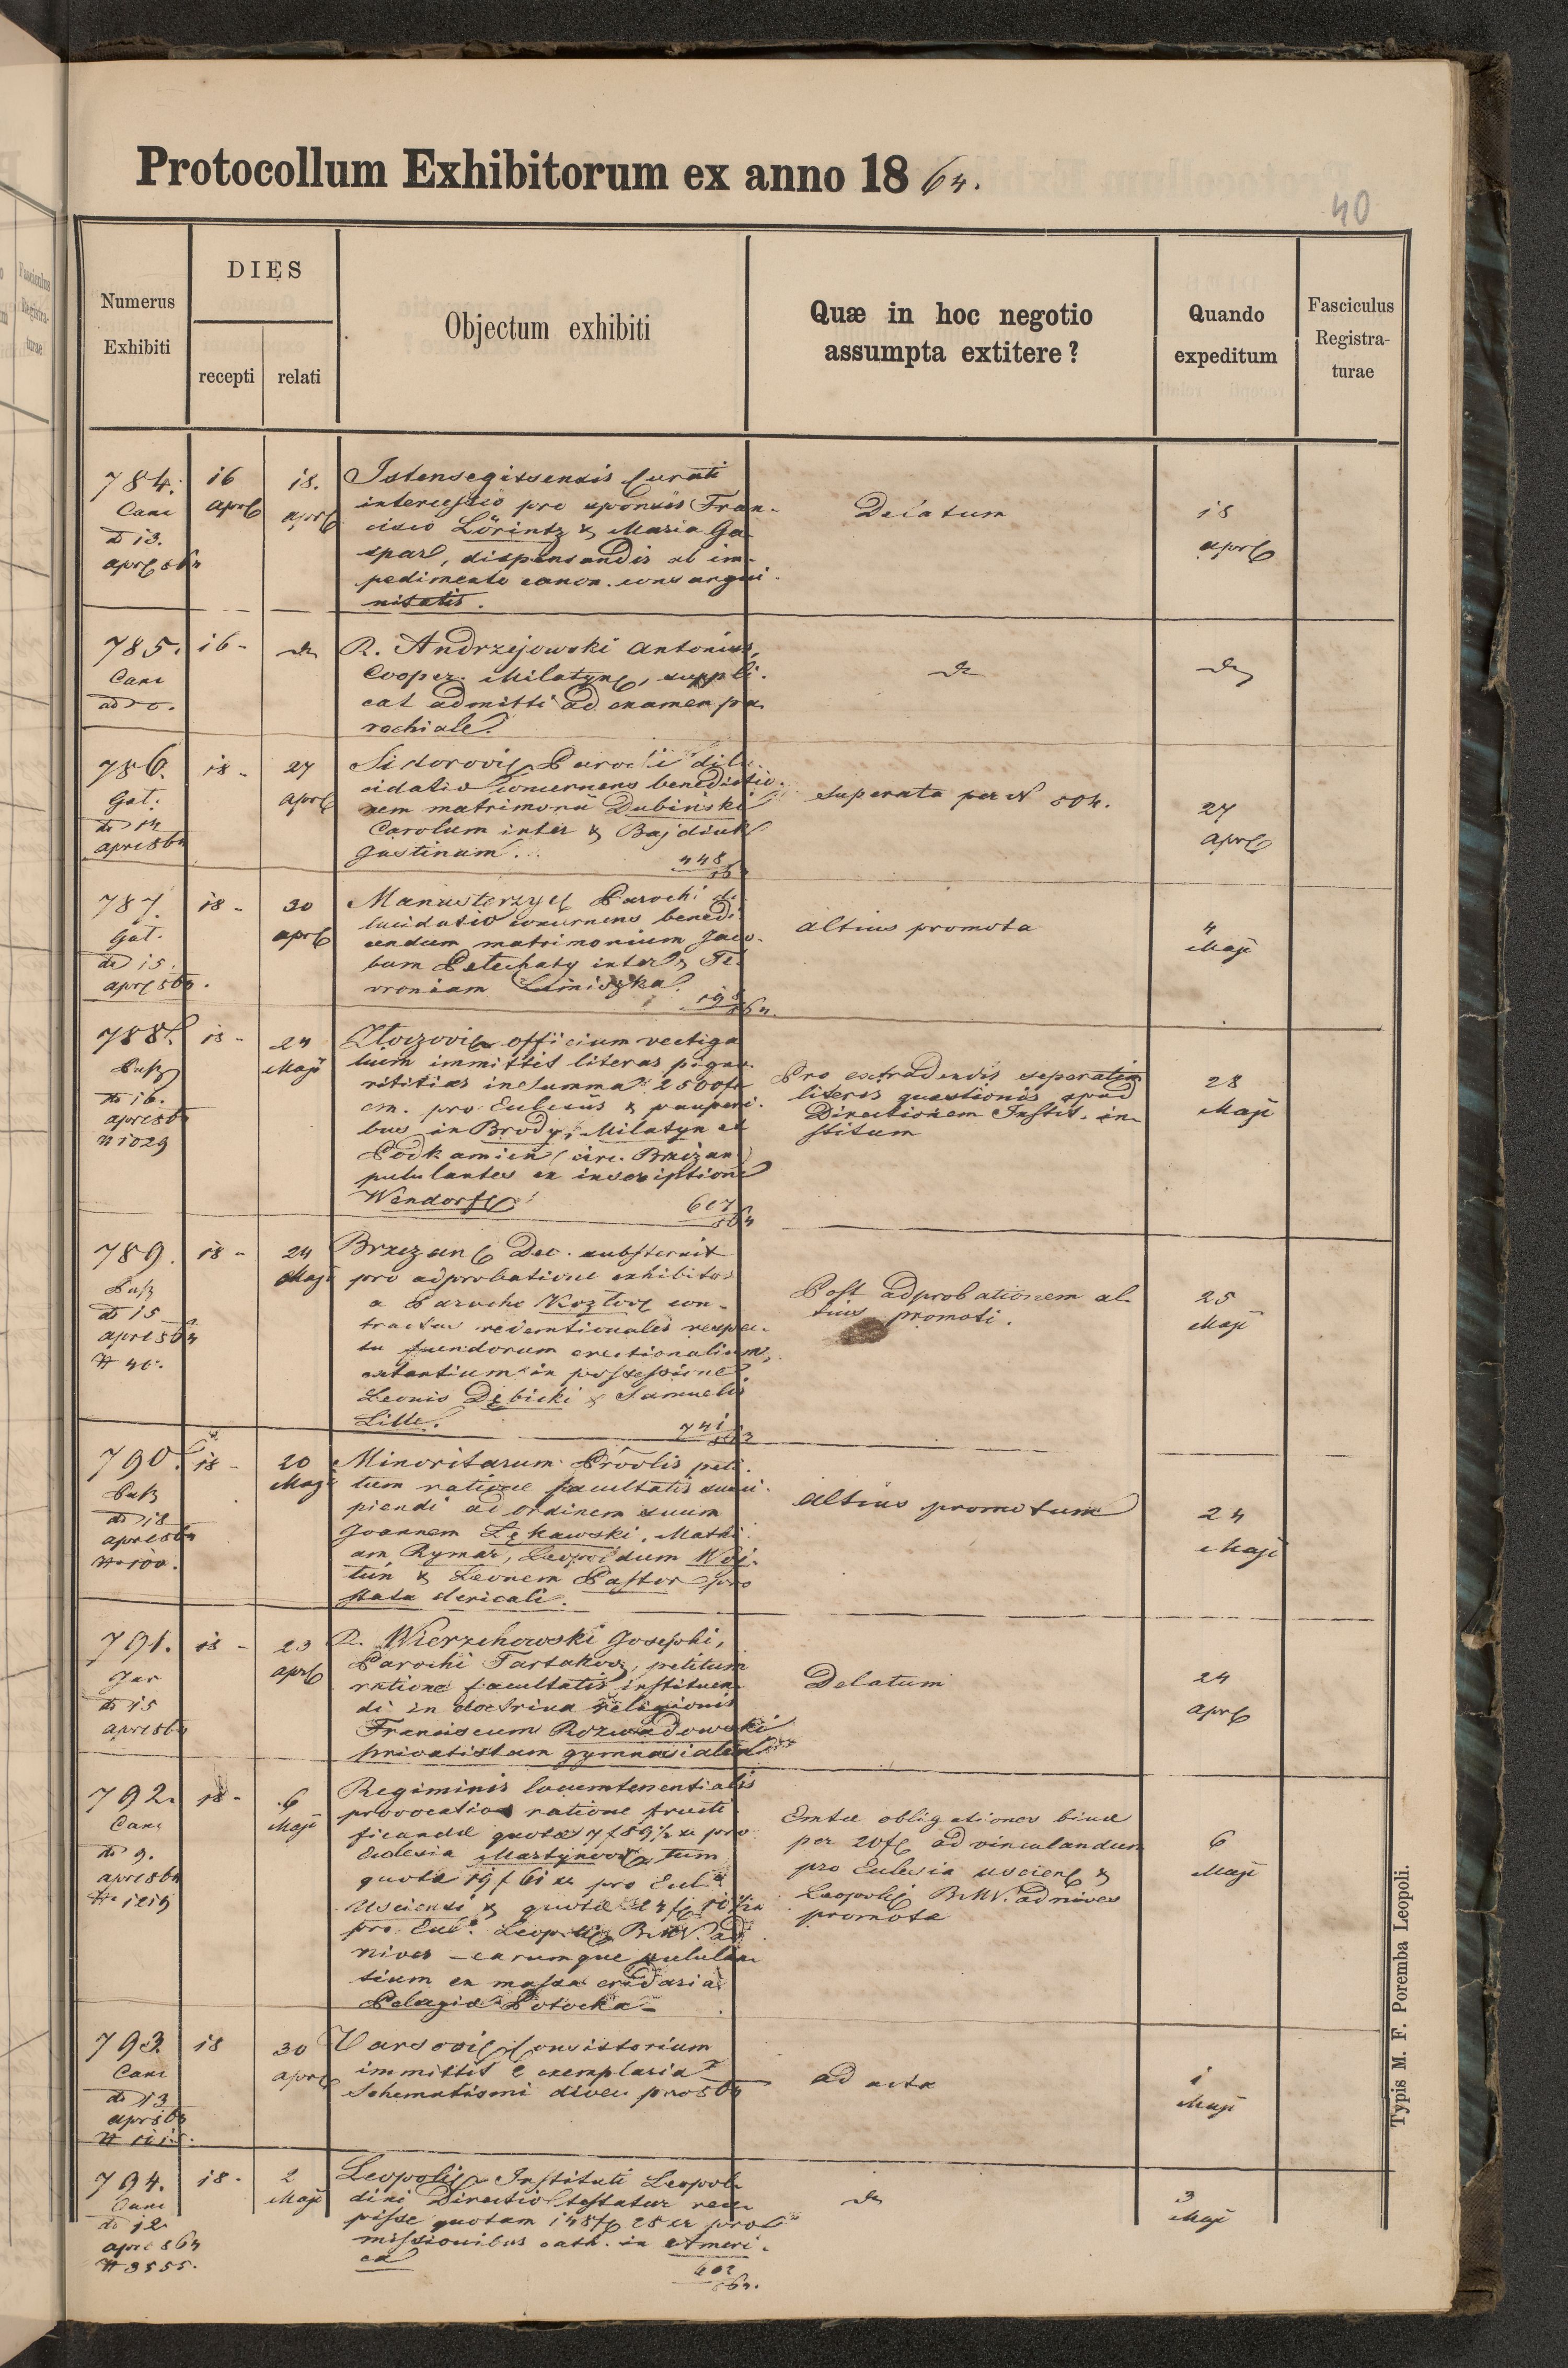 Protocollum Exhibitorum ex anno 18 64.
40
Numerus Exhibiti
DIES
recepti
relati
Objectum exhibiti
Quæ in hoc negotio assumpta extitere?
Quando expeditum
Fasciculus Registra-turae
784.
Canc
d 13.
apr 864
16
apr
18.
apr
Istensegitsensis Curati
intercessio pro sponsis Fran-
cisco Lörintz & Maria Ga-
spar, dispensandis ab im-
pedimento canon. consangui-
nitatis.
Delatum
18
apr
785.
Canc
16 -
R. Andrzejowski Antonius,
Cooper. Milatyn, suppli-
cat admitti ad examen pa-
rochiale.
786.
Gal.
dd 14
apr 864
18 -
27
apr
Sidorovi Parochi dilu-
cidatio concernens benedictio-
nem matrimonii Dubinski
Carolum inter & Bajdiuk
Justinam.
448
864
Superata per N 804.
27
apr
787.
Gal.
dd 15.
apr 864.
18 -
30
apr
Manasterzy Parochi di-
lucidatio concernens benedi-
cendum matrimonium Jaco-
bum Petechaty inter & Fe-
vroniam
198
864.
altius promota
4
Maji
788.
dd 16.
apr 864
N 1029
18 -
24
Maji
Zloczovi officium vectiga-
lium immittit literas pigno-
rititias in summa 2500 f
cm. pro Ecclesiis & pauperi-
bus in Brody, Milatyn et
Podkamien (circ. Brzezan)
pululantes ex inscriptione
Wendorff
607
864
Pro extradendis separatim
literis quaestionis apud
Directionem Instit. in-
stitum
28
Maji
789.
dd 15
apr 864
N 40.
18 -
24
Maji
Brzezan Dec. substernit
pro adprobatione exhibitos
a Parocho Kozlow con-
tractus redemtionales respec-
tu fundorum erectionalium,
extantium in possessione
Leonis Dębicki & Samuelis
Lille.
741
863
Post adprobationem al-
tius promoti.
25
Maji
790.
dd 18
apr 864
N 100.
18 -
20
Maji
Minoritarum Provlis peti-
tum ratione facultatis susci-
piendi ad ordinem suum
Joannem Łękawski, Mathi-
am Rymar, Leopoldum Woj-
tun & Leonem Pastor pro
statu clericali.
altius promotum
24
Maji
791.
Jar
dd 15
apr 864
18 -
23
apr
R. Wierzchowski Josephi,
Parochi Tartakov, petitum
ratione facultatis instituen-
di in doctrina religionis
Franciscum Rozwadowski
privatistam gymnasialem
Delatum
24
apr
792.
Canc
dd 9.
apr 864
18 -
6
Maji
Regiminis locumtenentialis
provocatio ratione fructi-
ficandæ quotæ 7 f 89½ x pro
Ecclesia Martynov tum
quotæ 19 f 61 x pro Eccl.
Usciensi & quotæ
pro Eccl. Leopoli B.M.V. ad
nives - earumque pululan-
tium ex massa cridaria
Pelagiæ Potocka -
Emtæ obligationes binæ
per 20 f ad vinculandum
pro Ecclesia Uscien &
Leopoli B.M.V. ad nives
promotæ
6
Maji
793.
Canc
dd 13
apr 864
18
30
apr
Varsovi Consistorium
immittit 2 exemplaria
Schematismi dioec. pro 864
ad acta
1
Maji
794.
Canc
dd 12
apr 864
N 3555.
18 -
2
Maji
Leopoli Instituti Leopol-
dini Directio testatur rece-
pisse quotam 148 f 28 x pro
missionibus cath. in Ameri-
ca
602
864.
3
Maji
Typis M. F. Poremba Leopoli.